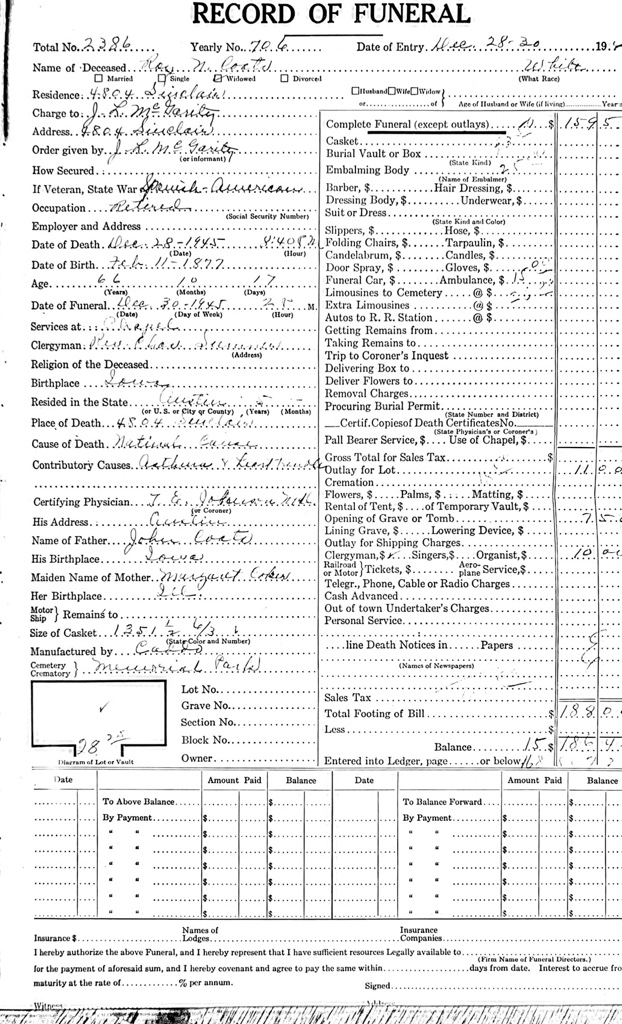 RECORD OF FUNERAL
Total No. 2386 Yearly No. 706 Date of Entry Dec. 28-30 19
Name of Deceased Roy N. Coats White
Married Single Widowed Divorced (What Race)
Residence: 4804 Sinclair Husband Wife Widow
or of Age of Husband or Wife (if living) Years
Charge to: J. L. McGarity
Address 4804 Sinclair
Order given by J. L. McGarity
(or informant)
How Secured
If Veteran, State War Spanish-American
Occupation Retired
(Social Security Number)
Employer and Address
Date of Death Dec. 28-1945
(Date) (Hour)
Date of Birth Feb. 11-1877
Age 66 10 17
(Years) (Months) (Days)
Date of Funeral Dec 30-1945 M.
(Date) (Day of Week) (Hour)
Services at Chapel
Clergyman Rev.
(Address)
Religion of the Deceased
Birthplace Iowa
Resided in the State Austin
(or U. S. or City or County) (Years) (Months)
Place of Death 4804 Sinclair
Cause of Death Natural Cause
Contributory Causes Asthma & Heart trouble
Certifying Physician T. E.
(or Coroner)
His Address Austin
Name of Father John Coats
His Birthplace Iowa
Maiden Name of Mother Margaret
Her Birthplace Ill
Motor Ship } Remains to
Size of Casket 1351 1/2 6/3
(State Color and Number)
Manufactured by
Cemetery Crematory } Memorial Park
Lot No.
Grave No.
Section No.
Block No.
Owner
28
Diagram of Lot or Vault
Complete Funeral (except outlays) $ 1595
Casket
Burial Vault or Box
(State Kind)
Embalming Body 25
(Name of Embalmer)
Barber, $ Hair Dressing, $
Dressing Body, $ Underwear, $
Suit or Dress
(State Kind and Color)
Slippers, $ Hose, $
Folding Chairs, $ Tarpaulin, $
Candelabrum, $ Candles, $
Door Spray, $ Gloves, $
Funeral Car, $ Ambulance, $ 15
Limousines to Cemetery @ $
Extra Limousines @ $
Autos to R. R. Station @ $
Getting Remains from
Taking Remains to
Trip to Coroner's Inquest
Delivering Box to
Deliver Flowers to
Removal Charges
Procuring Burial Permit
(State Number and District)
Certif. Copies of Death Certificates No.
(State Physician's or Coroner's)
Pall Bearer Service, $ Use of Chapel, $
Gross Total for Sales Tax
Outlay for Lot $ 11 00
Cremation
Flowers, $ Palms, $ Matting, $
Rental of Tent, $ of Temporary Vault, $
Opening of Grave or Tomb 7 5
Lining Grave, $ Lowering Device, $
Outlay for Shipping Charges
Clergyman, $ Singers, $ Organist, $ 10 00
Railroad or Motor } Tickets, $ Aeroplane Service, $
Telegr., Phone, Cable or Radio Charges
Cash Advanced
Out of town Undertaker's Charges
Personal Service
line Death Notices in Papers
(Names of Newspapers)
Sales Tax
Total Footing of Bill $ 1880
Less $
Balance $
Entered into Ledger, page or below
Date Amount Paid Balance Date Amount Paid Balance
To Above Balance $ To Balance Forward $
By Payment $ By Payment $
" " $ " " $
" " $ " " $
" " $ " " $
" " $ " " $
" " $ " " $
" " $ " " $
Insurance $ Names of Lodges Insurance Companies
I hereby authorize the above Funeral, and I hereby represent that I have sufficient resources Legally available to
(Firm Name of Funeral Directors.)
for the payment of aforesaid sum, and I hereby covenant and agree to pay the same within days from date. Interest to accrue from
maturity at the rate of % per annum. Signed
Witness